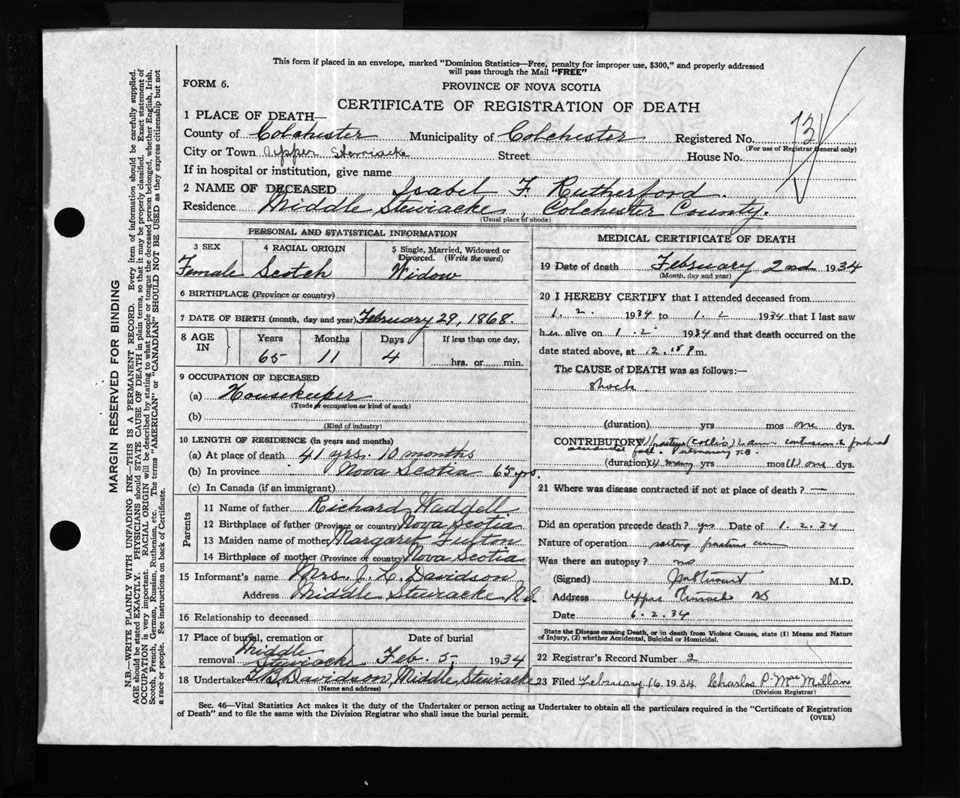 This form if placed in an envelope, marked "Dominion Statistics—Free, penalty for improper use, $300," and properly addressed
will pass through the Mail "FREE"
FORM 6.
PROVINCE OF NOVA SCOTIA
CERTIFICATE OF REGISTRATION OF DEATH
1 PLACE OF DEATH—
County of Colchester Municipality of Colchester Registered No.
(For use of Registrar General only)
City or Town Upper Stewiacke Street House No.
If in hospital or institution, give name
2 NAME OF DECEASED Isabel F. Rutherford.
Residence Middle Stewiacke, Colchester County.
(Usual place of abode)
PERSONAL AND STATISTICAL INFORMATION
3 SEX 4 RACIAL ORIGIN 5 Single, Married, Widowed or Divorced. (Write the word)
Female Scotch Widow
6 BIRTHPLACE (Province or country)
7 DATE OF BIRTH (month, day and year) February 29, 1868.
8 AGE IN Years Months Days If less than one day,
65 11 4 hrs. or min.
9 OCCUPATION OF DECEASED
(a) Housekeeper
(Trade or occupation or kind of work)
(b)
(Kind of industry)
10 LENGTH OF RESIDENCE (in years and months)
(a) At place of death 41 yrs. 10 months
(b) In province Nova Scotia 65 yrs.
(c) In Canada (if an immigrant)
Parents
11 Name of father Richard Waddell
12 Birthplace of father (Province or country) Nova Scotia
13 Maiden name of mother Margaret Fulton
14 Birthplace of mother (Province or country) Nova Scotia
15 Informant's name Mrs. J. L. Davidson
Address Middle Stewiacke N.S.
16 Relationship to deceased
17 Place of burial, cremation or removal Middle Stewiacke Date of burial Feb. 5, 1934
18 Undertaker Davidson, Middle Stewiacke
(Name and address)
MEDICAL CERTIFICATE OF DEATH
19 Date of death February 2nd 1934
(Month, day and year)
20 I HEREBY CERTIFY that I attended deceased from
1. 2. 1934 to 1. 2 1934 that I last saw
her alive on 1. 2. 1934 and that death occurred on the
date stated above, at 12. m.
The CAUSE of DEATH was as follows:—
Shock
(duration) yrs mos one dys.
CONTRIBUTORY fracture (Colles) accidental fall. Pulmonary T.B.
(duration) many yrs mos one dys.
21 Where was disease contracted if not at place of death? —
Did an operation precede death? yes Date of 1. 2. 34
Nature of operation setting fracture arm
Was there an autopsy? no
(Signed) M.D.
Address Upper Stewiacke NS
Date 6. 2. 34
State the Disease causing Death, or in death from Violent Causes, state (1) Means and Nature
of Injury, (2) whether Accidental, Suicidal or Homicidal.
22 Registrar's Record Number 2
23 Filed February 16, 1934 Charles P. MacMillan
(Division Registrar)
Sec. 46—Vital Statistics Act makes it the duty of the Undertaker or person acting as Undertaker to obtain all the particulars required in the "Certificate of Registration
of Death" and to file the same with the Division Registrar who shall issue the burial permit.
(OVER)
MARGIN RESERVED FOR BINDING
N.B.—WRITE PLAINLY WITH UNFADING INK—THIS IS A PERMANENT RECORD. Every item of information should be carefully supplied.
AGE should be stated EXACTLY. PHYSICIANS should STATE CAUSE OF DEATH in plain terms, so that it may be properly classified. Exact statement of
OCCUPATION is very important. RACIAL ORIGIN will be described by stating to what people or tongue the deceased person belonged, whether English, Irish,
Scotch, French, German, Russian, Ruthenian, etc. The terms "AMERICAN" or "CANADIAN" SHOULD NOT BE USED as they express citizenship but not
a race or people. See instructions on back of Certificate.